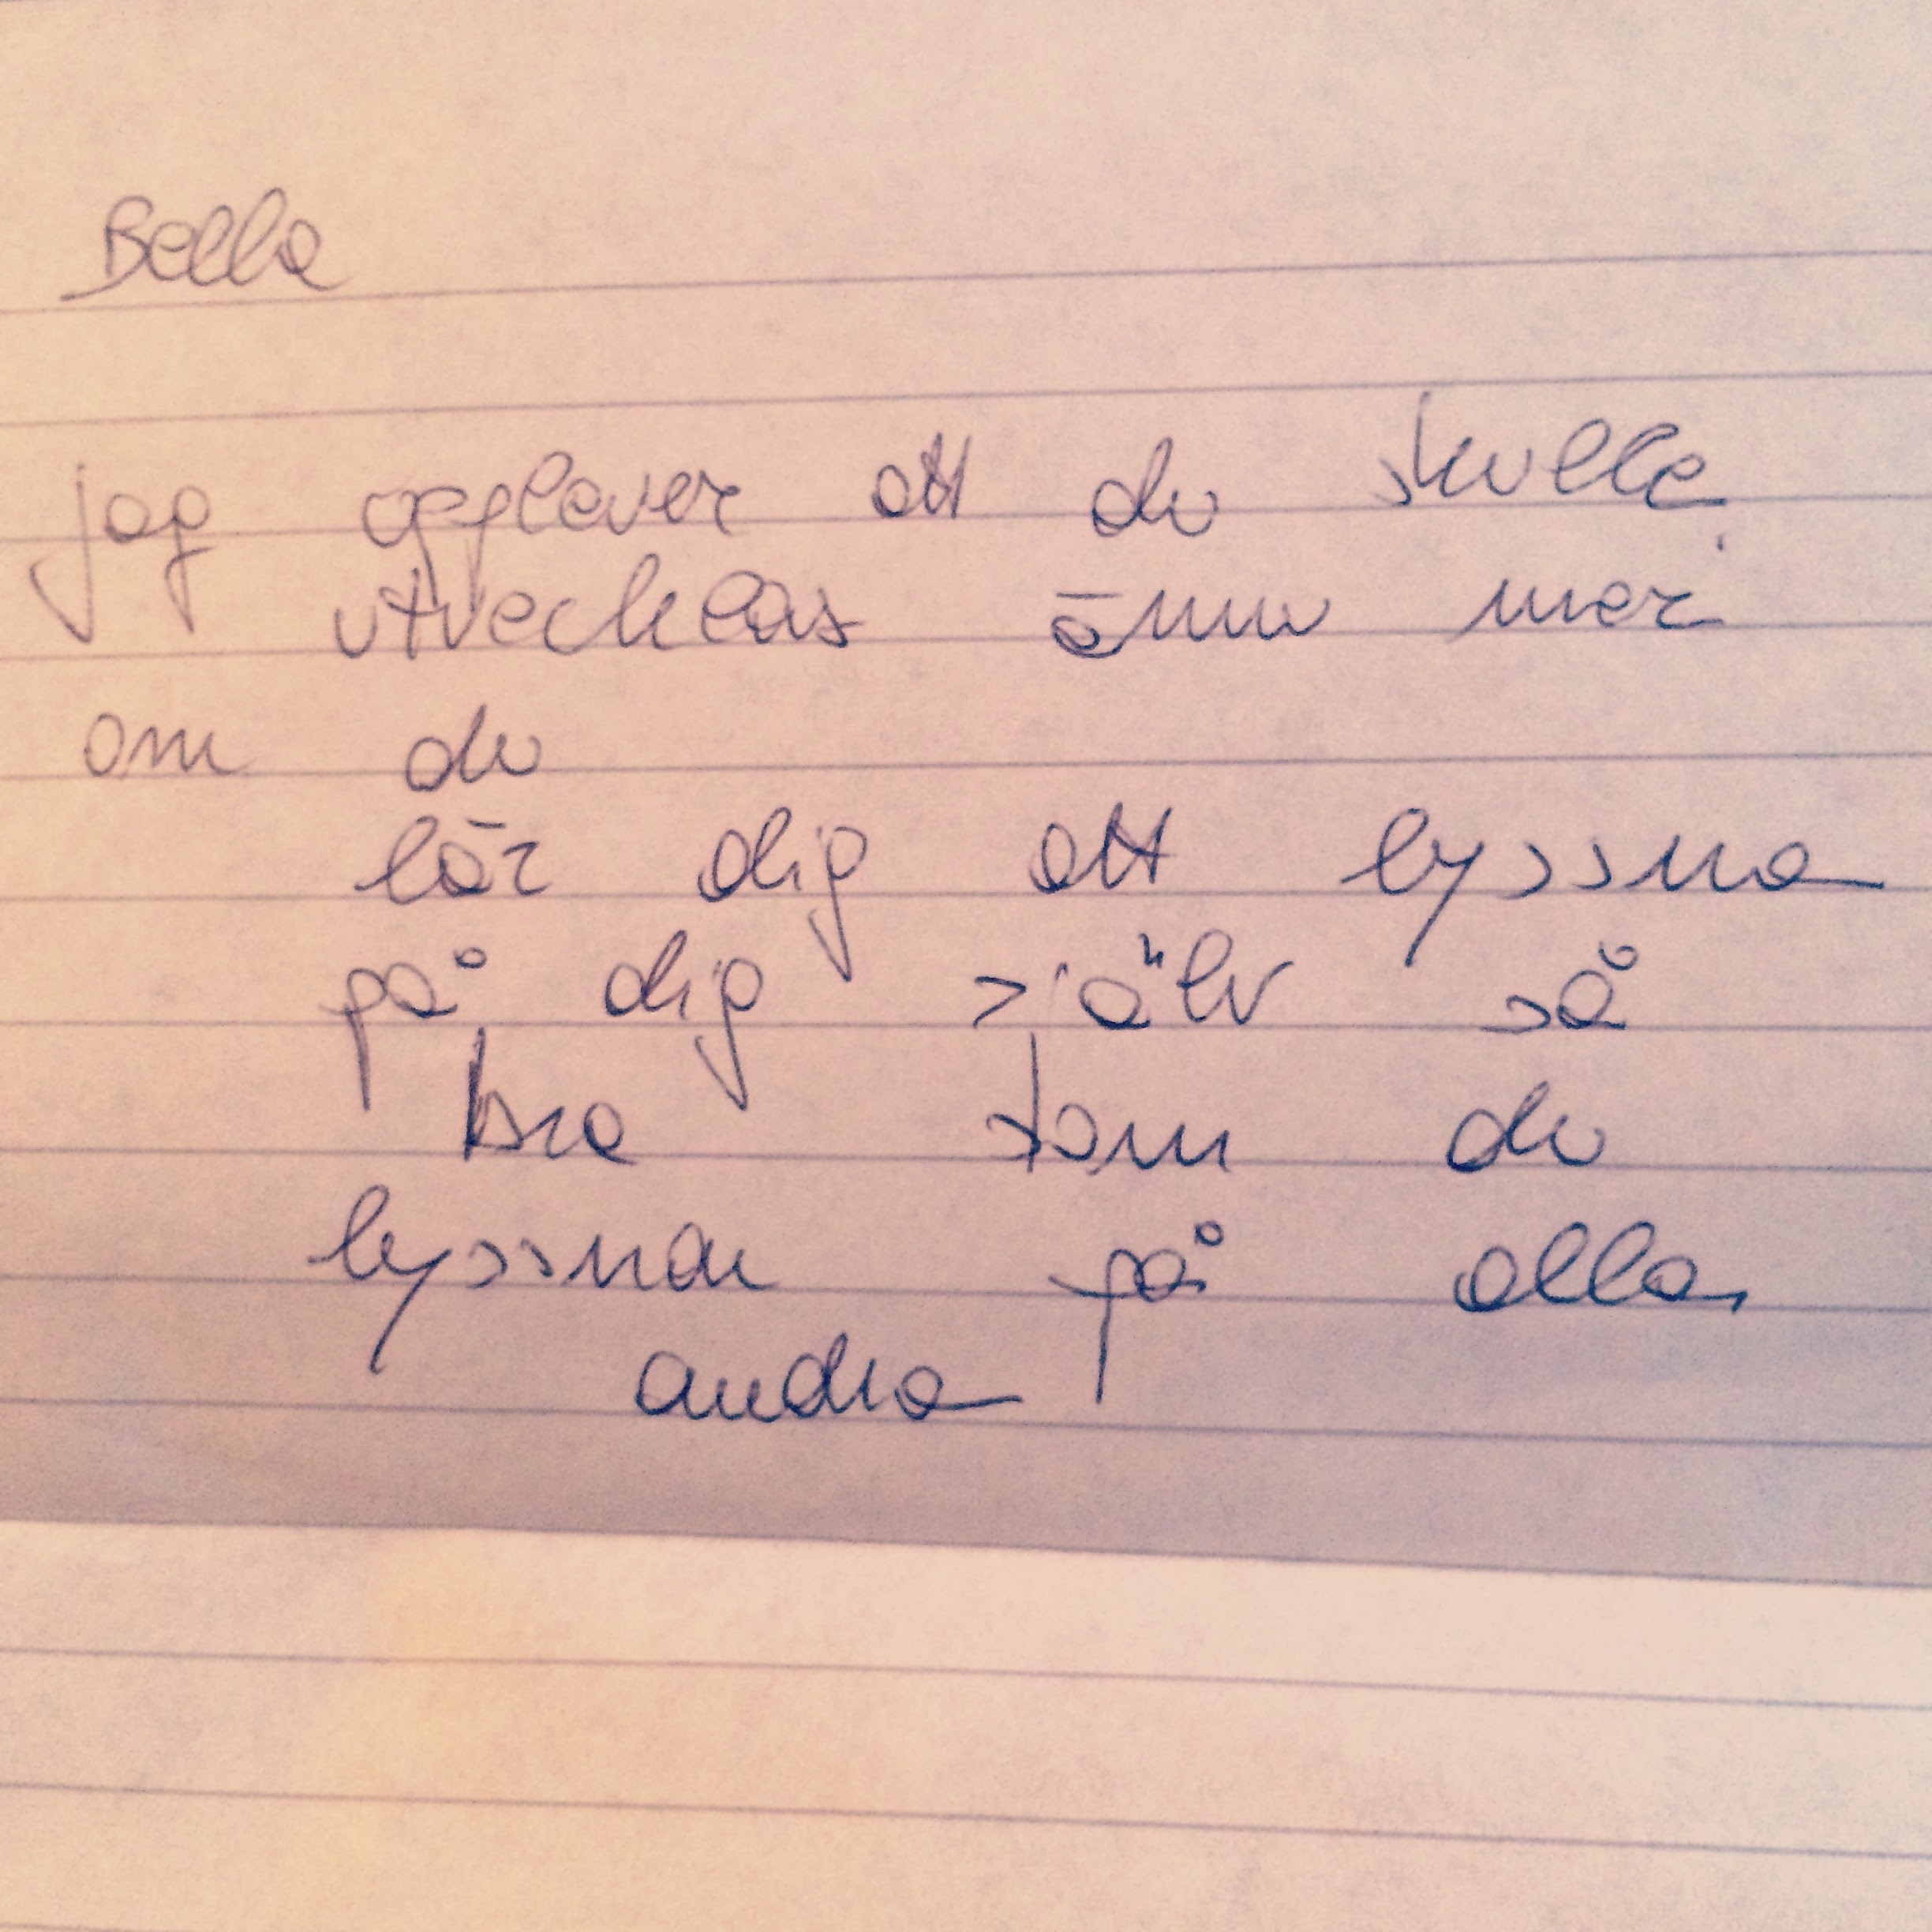 Bella
jag upplever att du skulle
utvecklas ännu mer
om du
lär dig att lyssna
på dig själv så
bra som du
lyssnar på alla
andra